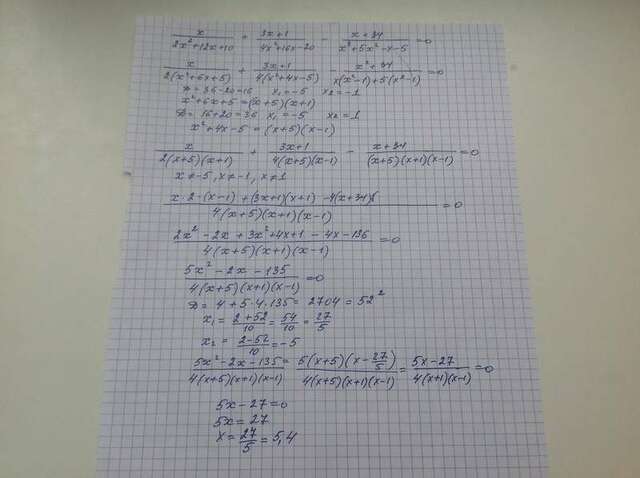 x/(2x²+12x+10) + (3x+1)/(4x²+16x-20) - (x+34)/(x³+5x²-x-5) =0
x/(2(x²+6x+5)) + (3x+1)/(4(x²+4x-5)) - (x²+34)/(x(x²-1)+5(x²-1)) =0
D = 36-20=16 x₁=-5 x₂=-1
x²+6x+5 =(x+5)(x+1)
D = 16+20=36 x₁=-5 x₂=1
x²+4x-5 = (x+5)(x-1)
x/(2(x+5)(x+1)) + (3x+1)/(4(x+5)(x-1)) - (x+34)/((x+5)(x+1)(x-1)) =0
x≠-5, x≠-1, x≠1
(x·2·(x-1)+(3x+1)(x+1)-4(x+34))/(4(x+5)(x+1)(x-1)) =0
(2x²-2x+3x²+4x+1-4x-136)/(4(x+5)(x+1)(x-1)) =0
(5x²-2x-135)/(4(x+5)(x+1)(x-1)) =0
D = 4+5·4·135= 2704 = 52²
x₁ = (2+52)/10 = 54/10 = 27/5
x₂ = (2-52)/10 = -5
(5x²-2x-135)/(4(x+5)(x+1)(x-1)) = (5(x+5)(x-27/5))/(4(x+5)(x+1)(x-1)) = (5x-27)/(4(x+1)(x-1)) =0
5x-27=0
5x=27
x = 27/5 = 5,4